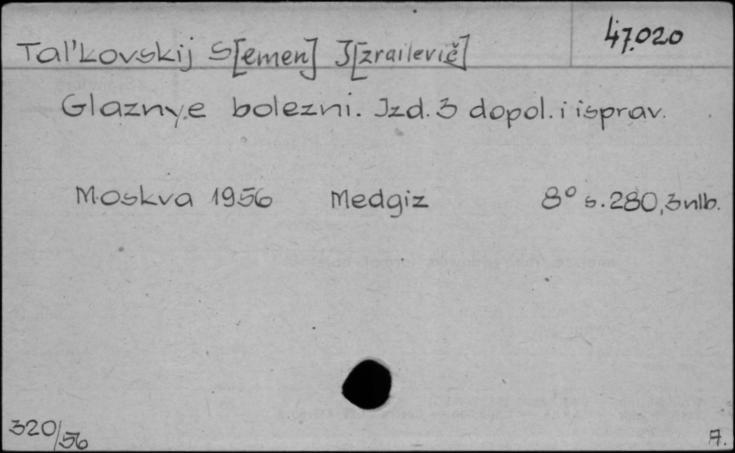 47.020
Tal'kovskij S[emen] J[zrailevič]
Glaznye bolezni. Jzd. 3 dopol. i isprav.
Moskva 1956 Medgiz 8° s. 280, 3 nlb.
320/56 A.